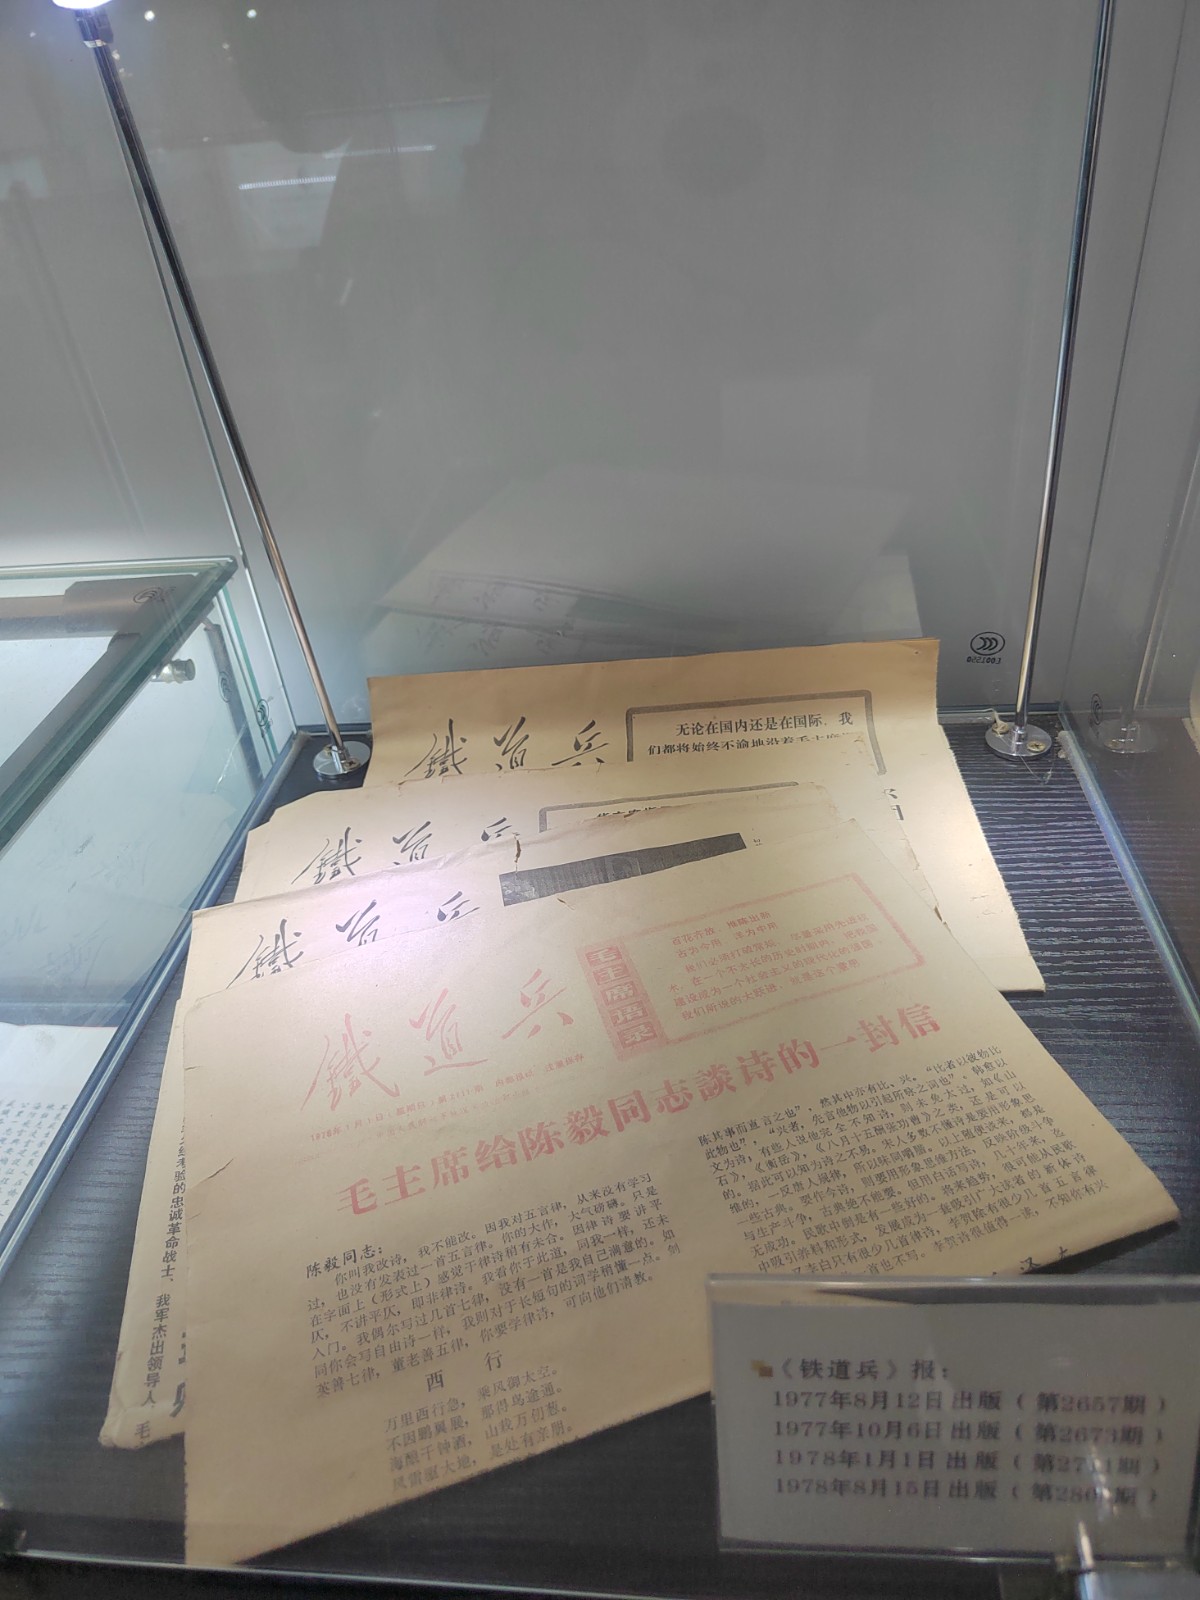 鐵道兵
无论在国内还是在国际，我
们都将始终不渝地沿着毛主席
鐵道兵
鐵道兵
鐵道兵
毛主席语录
百花齐放，推陈出新
古为今用，洋为中用
我们必须打破常规，尽量采用先进技
术，在一个不太长的历史时期内，把我国
建设成为一个社会主义的现代化的强国。
我们所说的大跃进，就是这个意思
1978年1月1日（星期日）第2711期 内部报纸 注意保存
毛主席给陈毅同志談诗的一封信
陈毅同志：
你叫我改诗，我不能改。因我对五言律，从来没有学习
过，也没有发表过一首五言律。你的大作，大气磅礴。只是
在字面上（形式上）感觉于律诗稍有未合。因律诗要讲平
仄，不讲平仄，即非律诗。我看你于此道，同我一样，还未
入门。我偶尔写过几首七律，没有一首是我自己满意的。如
同你会写自由诗一样，我则对于长短句的词学稍懂一点。剑
英善七律，董老善五律，你要学律诗，可向他们请教。
西行
万里西行急，乘风御太空。
不因鹏翼展，那得鸟途通。
海酿千钟酒，山栽万仞葱。
风雷驱大地，是处有亲朋。
陈其事而直言之也”，然其中亦有比、兴。“比者以彼物比
此物也”，“兴者，先言他物以引起所咏之词也”。韩愈以
文为诗，有些人说他完全不知诗，则未免太过，如《山
石》，《衡岳》，《八月十五酬张功曹》之类，还是可以
的。据此可以知为诗之不易。宋人多数不懂诗是要用形象思
维的，一反唐人规律，所以味同嚼腊。以上随便谈来，都是
一些古典。要作今诗，则要用形象思维方法，反映阶级斗争
与生产斗争，古典绝不能要。但用白话写诗，几十年来，迄
无成功。民歌中倒是有一些好的。将来趋势，很可能从民歌
中吸引养料和形式，发展成为一套吸引广大读者的新体诗
又李白只有很少几首律诗，李贺除有很少几首五言律
首也不写。李贺诗很值得一读，不知你有兴
考验的忠诚革命战士、我军杰出领导人
《铁道兵》报：
1977年8月12日出版（第2657期）
1977年10月6日出版（第2673期）
1978年1月1日出版（第2711期）
1978年8月15日出版（第280 期）